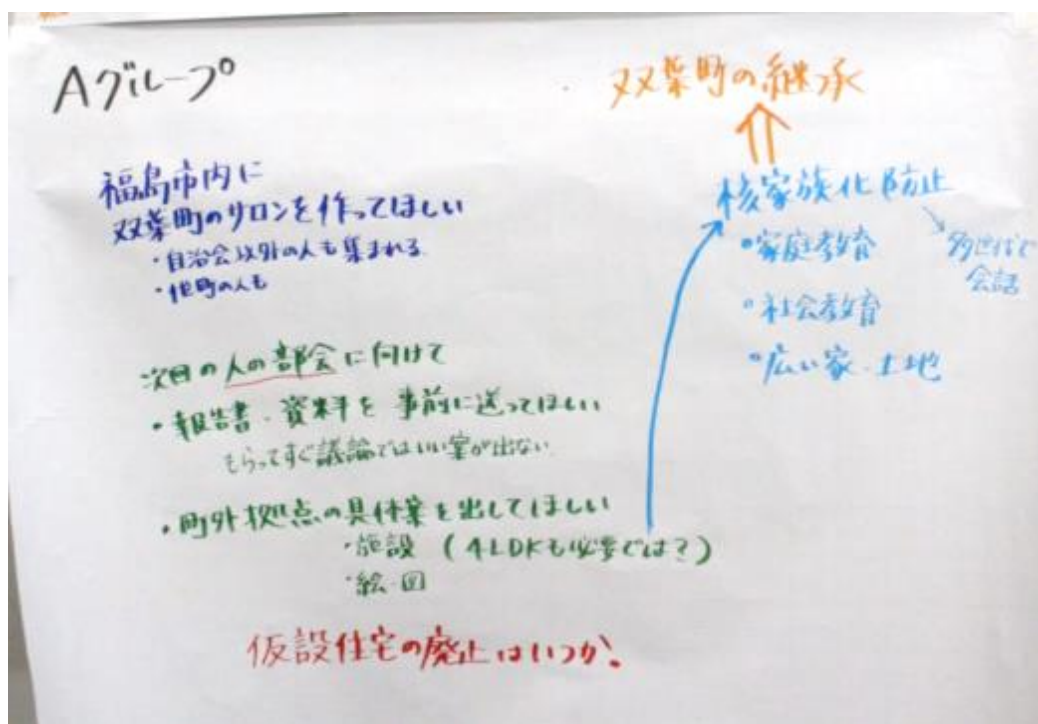 Aグループ
福島市内に
双葉町のサロンを作ってほしい
・自治会以外の人も集まれる
・他町の人も
次回の人の部会に向けて
・報告書・資料を事前に送ってほしい
もらってすぐ議論ではいい案が出ない
・町外拠点の具体案を出してほしい
・施設(4LDKも必要では?)
・絵・図
仮設住宅の廃止はいつか。
双葉町の継承
核家族化防止
・家庭教育
・社会教育
・広い家・土地
多世代で
会話